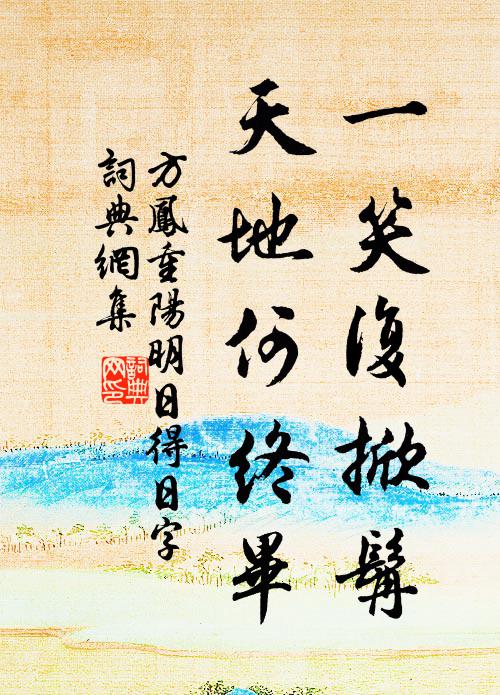 一笑復掀髯
天地何終畢
方鳳重陽明日得日字
詞典網集
詞典網印